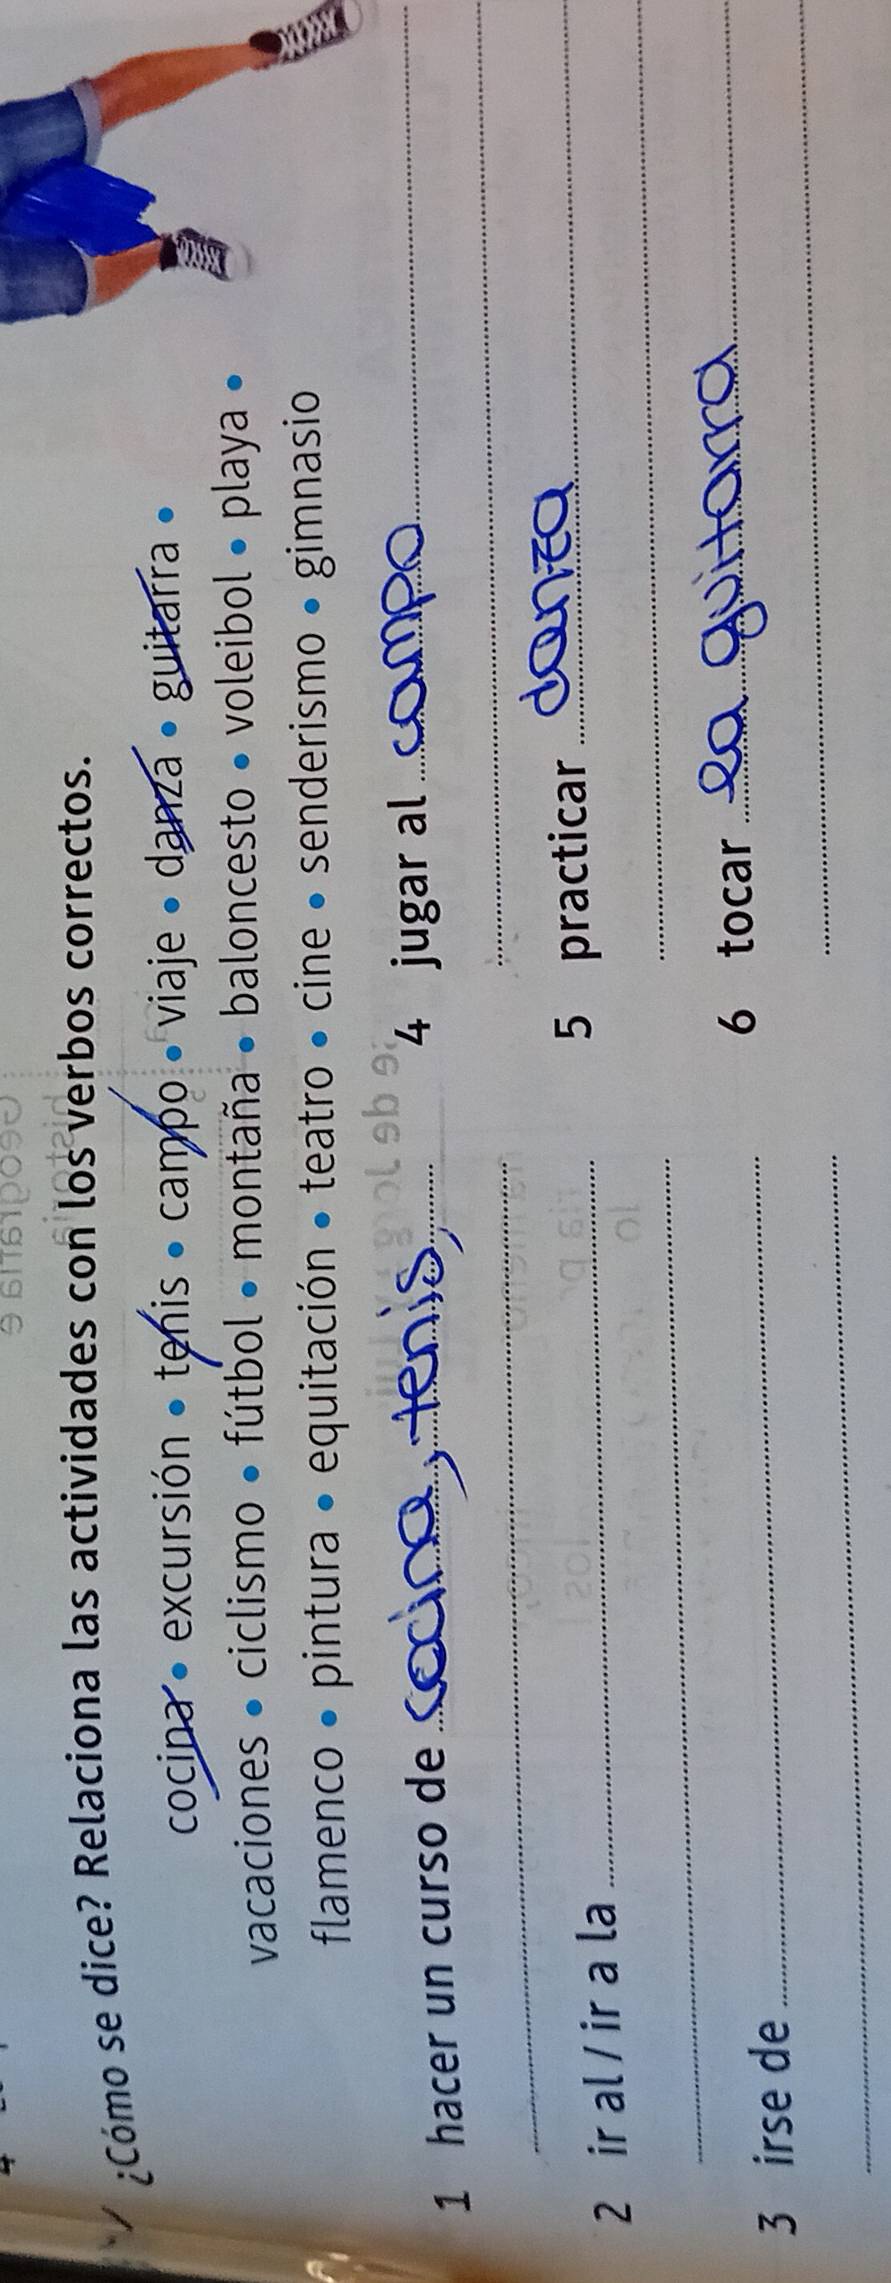 ¿Cómo se dice? Relaciona las actividades con los verbos correctos.
cocina • excursión • tenis • campo • viaje • danza • guitarra •
vacaciones • ciclismo • fútbol • montaña • baloncesto • voleibol • playa •
flamenco • pintura • equitación • teatro • cine • senderismo • gimnasio
1 hacer un curso de cocina, tenis,
2 ir al / ir a la
3 irse de
4 jugar al campo
5 practicar danza
6 tocar la guitarra